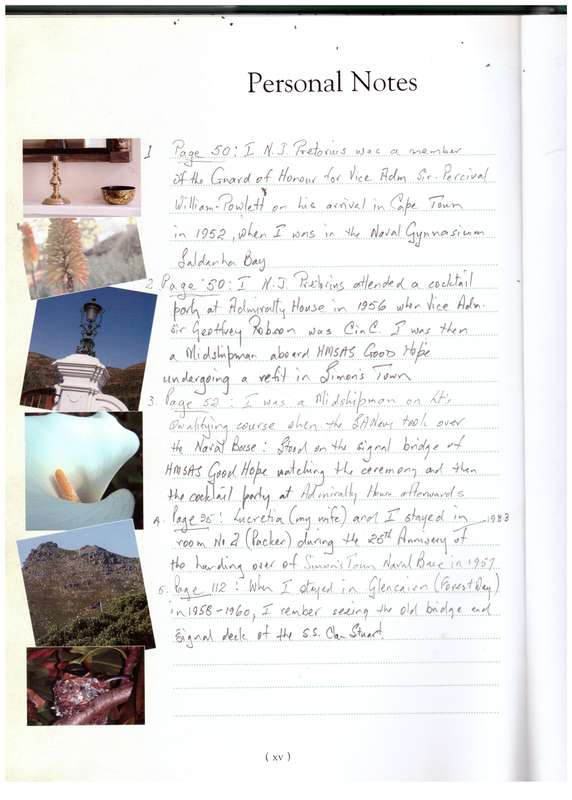 Personal Notes
1 Page 50: I N.J. Pretorius was a member
of the Guard of Honour for Vice Adm. Sir. Percival
William-Powlett on his arrival in Cape Town
in 1952, when I was in the Naval Gymnasium
Saldanha Bay
2. Page 50: I N.J. Pretorius attended a cocktail
party at Admiralty House in 1956 when Vice Adm.
Sir Geoffrey Robson was CinC. I was then
a Midshipman aboard HMSAS Good Hope
undergoing a refit in Simon's Town
3. Page 52: I was a Midshipman on Lt's
Qualifying course when the SANavy took over
the Naval Base: Stood on the signal bridge of
HMSAS Good Hope watching the ceremony and then
the cocktail party at Admiralty House afterwards
4. Page 95: Lucretia (my wife) and I stayed in 1983
room No 2 (Packer) during the 25th of
the handing over of Simon's Town Naval Base in 1957
5. Page 112: When I stayed in Glencairn
in 1958-1960, I rember seeing the old bridge and
signal deck of the S.S. Clan Stuart.
(xv)